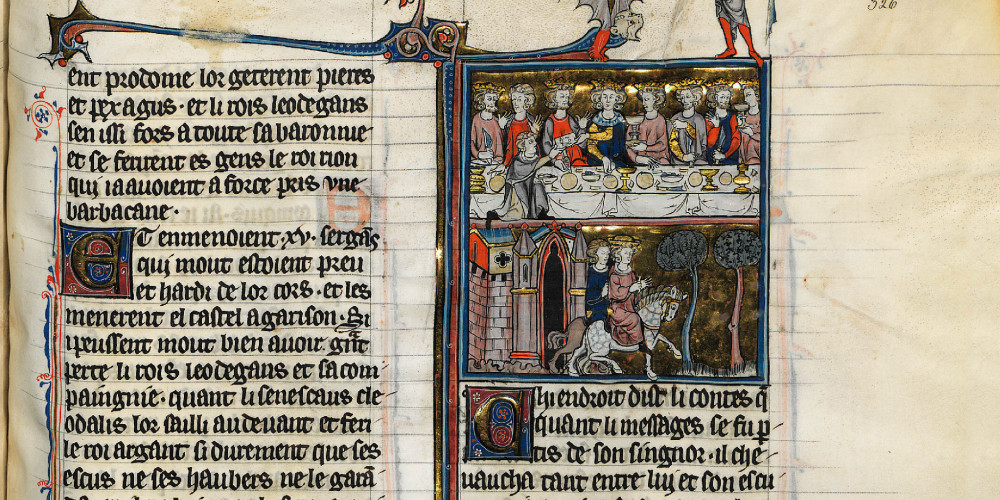 ent prodome lor geterent pieres
et pex agus · et li rois leodegans
sen issi fors a toute sa baronnie
et se ferirent es gens le roi rion
qui ia auoient a force pris vne
barbacane ·
ET enmenoient · xv · sergās
qui mout estoient preu
et hardi de lor cors · et les
menerent el castel a garison · Si
i peussent mout bien auoir gᵃnt
perte li rois leodegans et sa com
paingnie · quant li senescaus cle
odalis lor sailli au deuant et feri
le roi argant si durement que ses
escus ne ses haubers ne le garā
326
Chi endroit dist li contes q̄
quant li messages se fu p̱
tis de son singnor · il che
uaucha tant entre lui et son escu